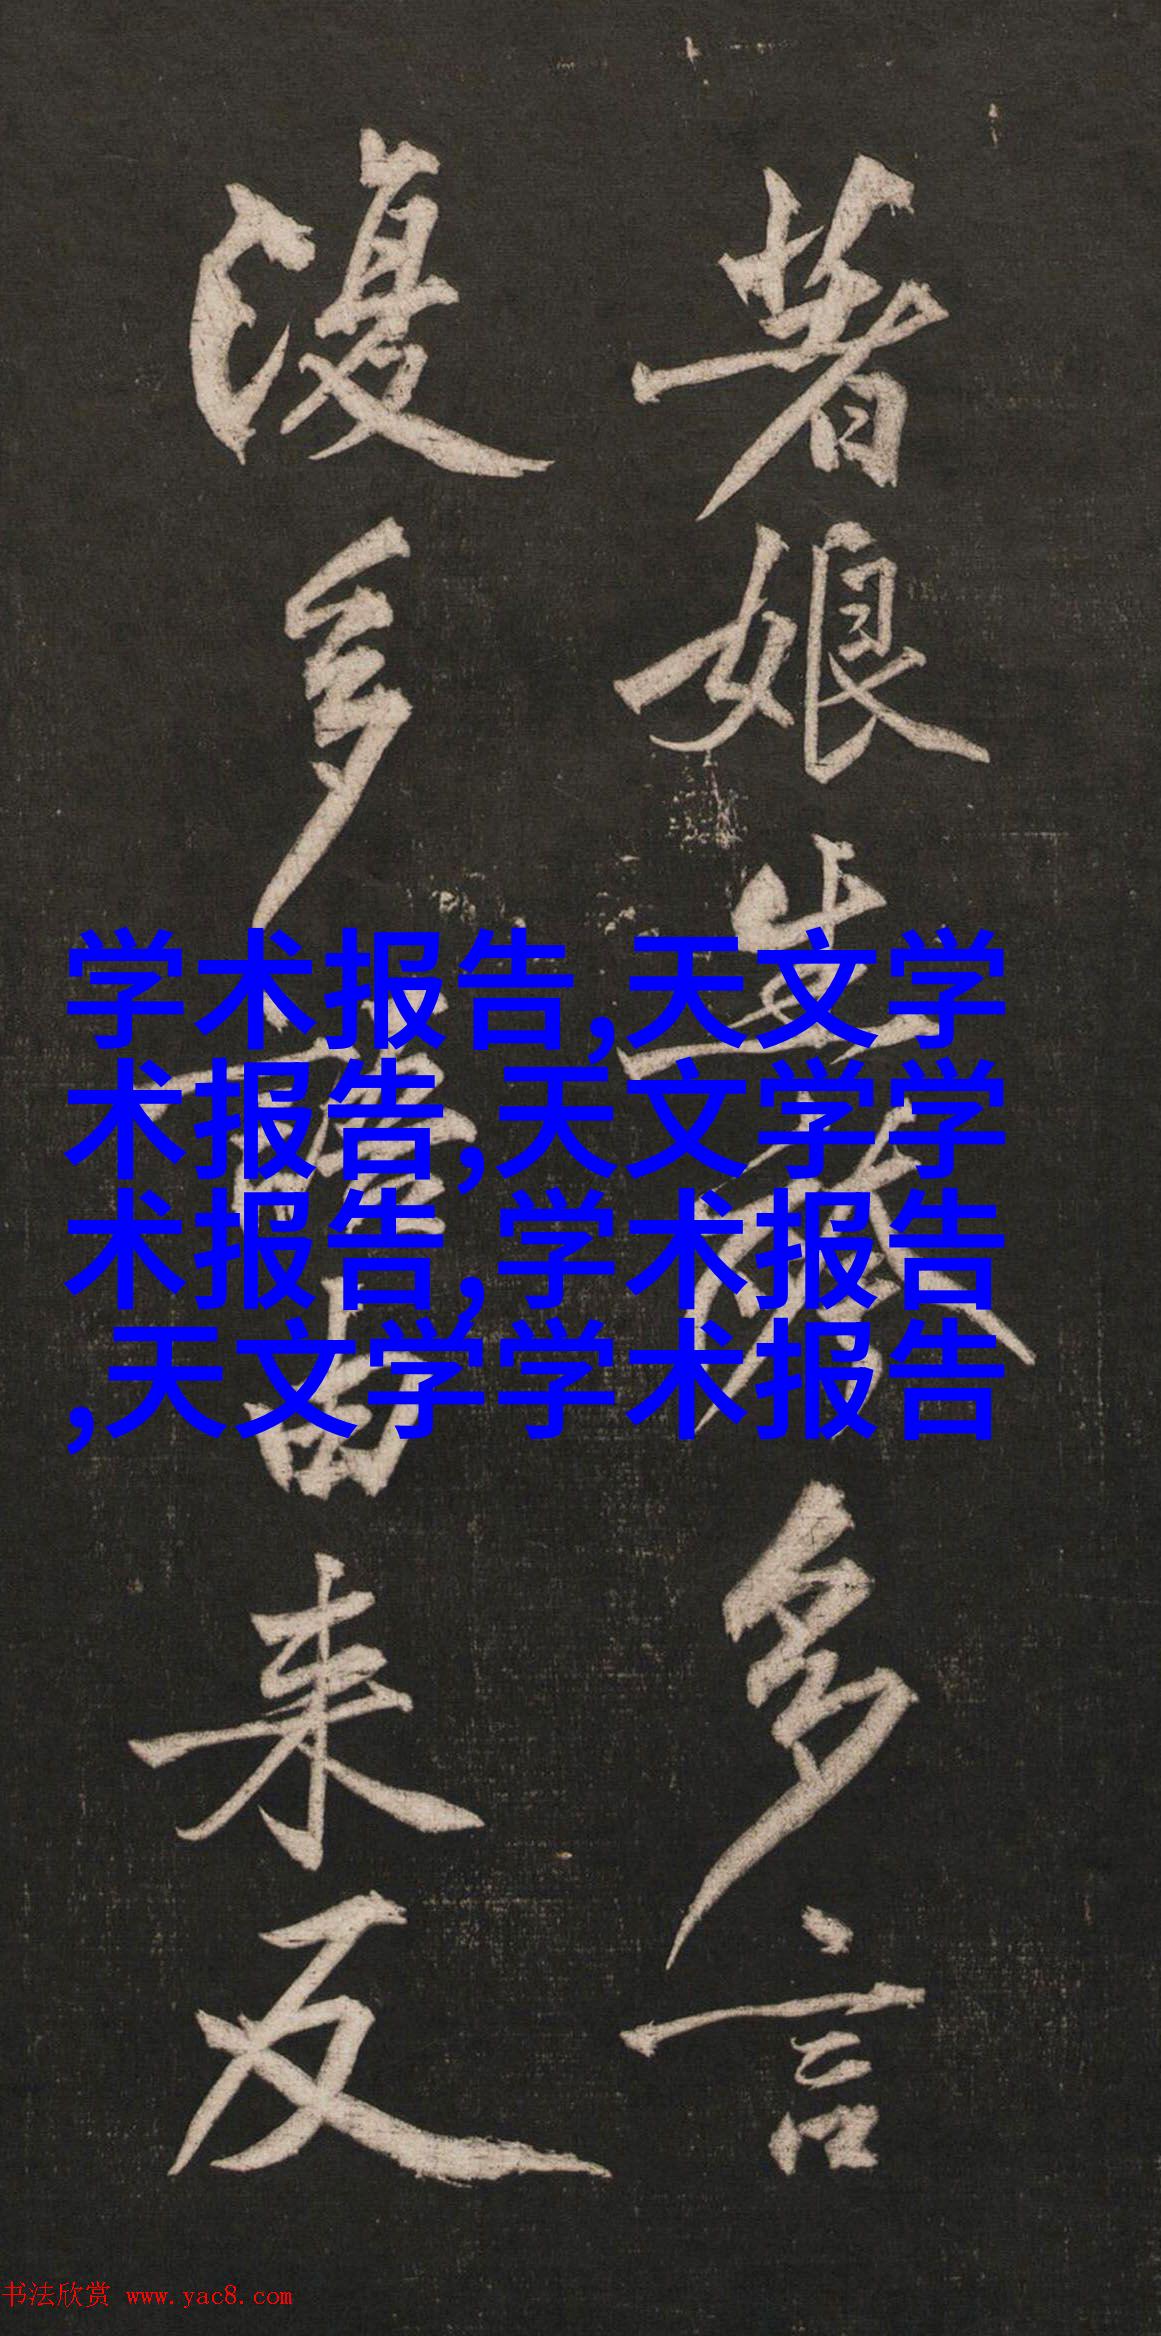 若娘生殊多言
复多  由来反
学术报告,天文学
术报告,天文学学
术报告,学术报告
,天文学学术报告
书法欣赏 www.yac8.com